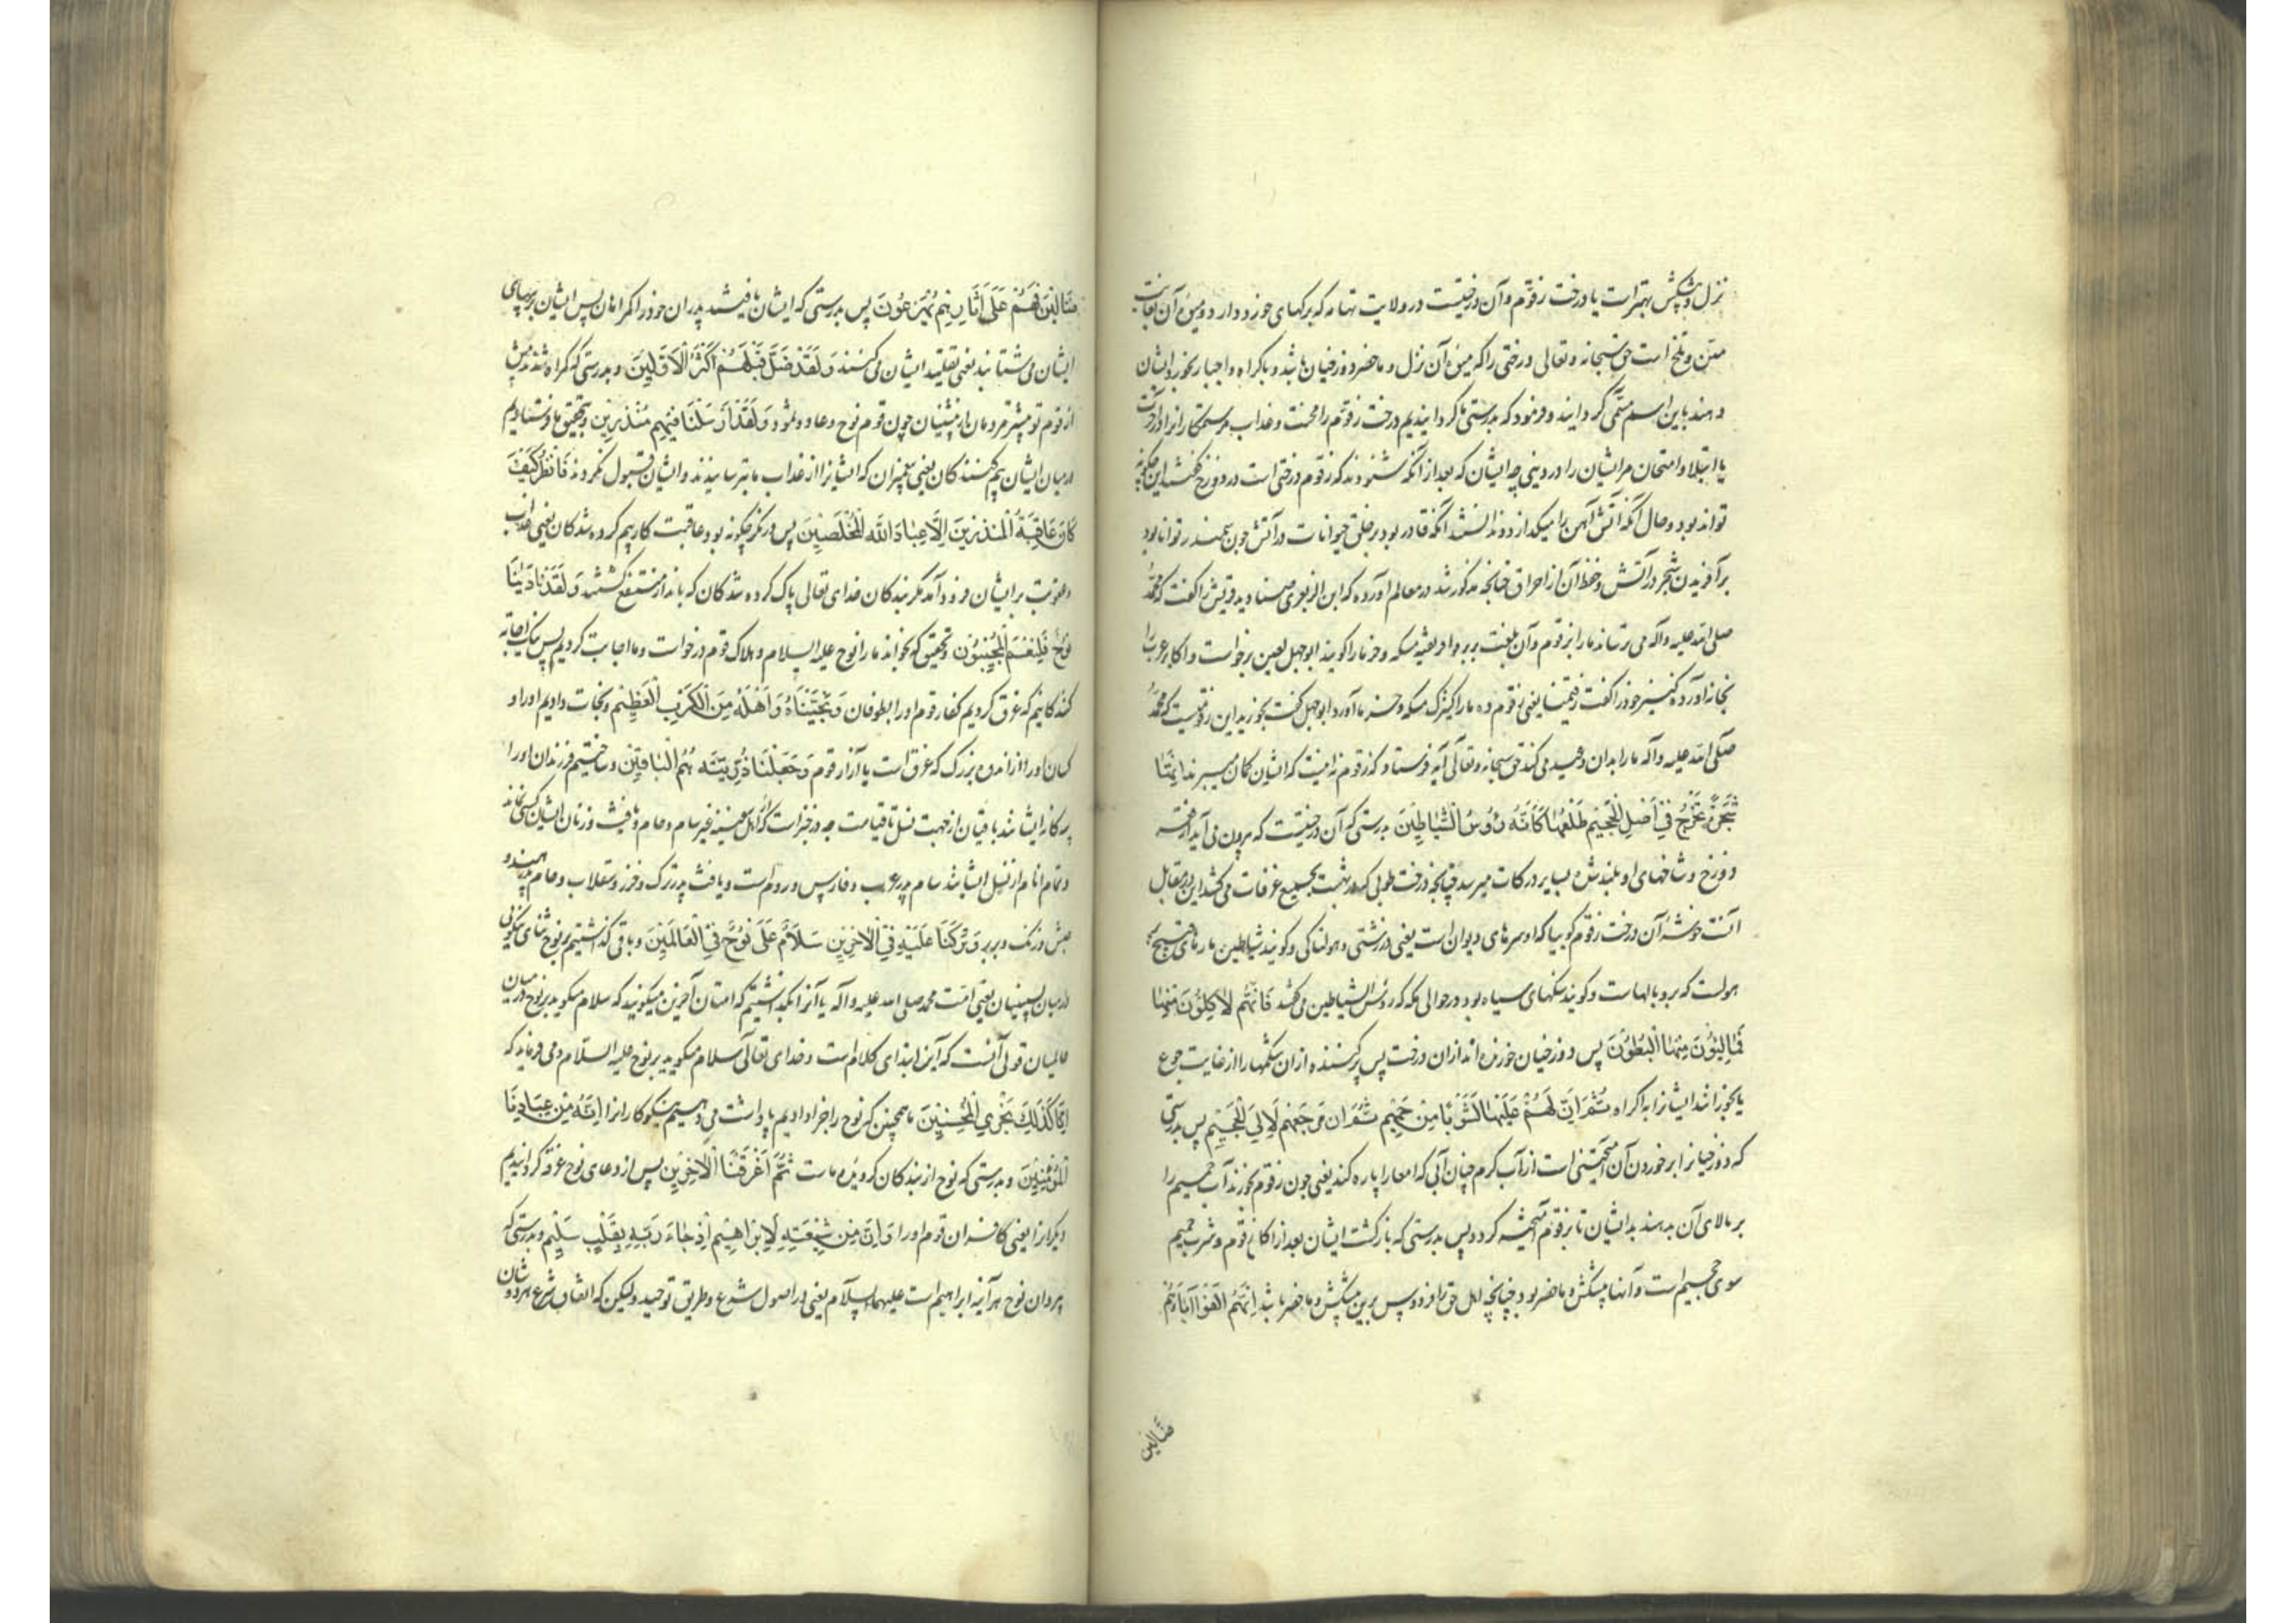 نزل و پیشکش بهتر است یا درخت زقوم و آن درختیست در ولایت تهامه که برکهای خورد دارد و میوه آن بغایت
منتن و تلخ است حق سبحانه و تعالی درختی را که میوه آن نزل و ماحضر دوزخیان باشد و باکراه و اجبار بخورد ایشان
دهند باین اسم مسمی کردانید و فرمود که بدرستی ما کردانیدیم درخت زقوم را محنت و عذاب مر ستمکارانرا در آخرت
یا ابتلا و امتحان مر ایشان را در دنیی چه ایشان که بعد از آنکه شنودند که زقوم درختی است در دوزخ گفتند این چکونه
تواند بود و حال آنکه آتش آهن را میکدازد و ندانستند آنکه قادر بود بر خلق حیوانات در آتش چون سمندر توانا بود
بر آفریدن شجر در آتش و حفظ آن از احراق چنانچه مذکور شد در معالم آورده که ابن الزبعری صنادید قریش را گفت که محمد
صلی الله علیه و آله می ترساند ما را بزقوم و آن بلغت بربر و افریقیه مسکه و خرما را کویند ابوجهل لعین برخواست و اکابر عرب را
بخانه آورد و کنیز خود را گفت زقمینا یعنی زقوم ده ما را کنیزک مسکه و خرما آورد ابوجهل گفت بخورید این زقومیست که محمد
صلی الله علیه و آله ما را بدان وعید می کند حق سبحانه و تعالی آیه فرستاد که زقوم نه اینست که ایشان کمان میبرند اِنَّهَا
شَجَرَةٌ تَخْرُجُ فِی اَصْلِ الْجَحِیمِ طَلْعُهَا كَاَنَّهُ رُؤُسُ الشَّيَاطِينَ بدرستی که آن درختیست که بیرون می آید از قعر
دوزخ و شاخهای او بلند شده بسایر درکات میرسد چنانچه درخت طوبی که در بهشت بجمیع غرفات می کشد این در مقابل
آنست خوشه آن درخت زقوم کوییا که او سرهای دیوان است یعنی در زشتی و هولناکی و کویند شیاطین مارهای قبیح
هولست که بر و یالهاست و کویند سنکهای سیاه بود در حوالی مکه که رؤس الشیاطین می کفتند فَاِنَّهُمْ لَاٰكِلُونَ مِنْهَا
فَمَالِؤُنَ مِنْهَا الْبُطُونَ پس دوزخیان خورنده اند از ان درخت پس پر کننده از ان شکمها را از غایت جوع
یا بخورانند ایشانرا باکراه ثُمَّ اِنَّ لَهُمْ عَلَيْهَا لَشَوْبًا مِنْ حَمِيمٍ ثُمَّ اِنَّ مَرْجِعَهُمْ لَاِلَى الْجَحِيمِ پس بدرستی
که دوزخیانرا بر خوردن آن آمیختنی است از آب کرم چنان آبی که امعا را پاره کند یعنی چون زقوم بخورند آب حمیم را
بر بالای آن بدهند بدیشان تا بزقوم آمیخته کردد پس بدرستی که بازکشت ایشان بعد از اکل زقوم و شرب حمیم
سوی جحیم است و آنها پیشکش و ماحضر بود چنانچه اهل حق را فردوس برین پیشکش و ماحضر باشد اِنَّهُمْ اَلْفَوْا اٰبَاءَهُمْ
ضَالِّین
ضَالِّينَ فَهُمْ عَلَى اٰثَارِهِمْ يُهْرَعُونَ پس بدرستی که ایشان یافتند پدران خود را کمراهان پس ایشان بر پیهای
ایشان می شتابند یعنی تقلید ایشان می کنند وَ لَقَدْ ضَلَّ قَبْلَهُمْ اَكْثَرُ الْاَوَّلِينَ و بدرستی که کمراه شدند پیش
از قوم تو بیشتر مردمان از پیشینیان چون قوم نوح و عاد و ثمود وَ لَقَدْ اَرْسَلْنَا فِيهِمْ مُنْذِرِينَ و بتحقیق ما فرستادیم
در میان ایشان بیم کنندکان یعنی پیغمبران که ایشانرا از عذاب ما بترسانیدند و ایشان قبول نکردند فَانْظُرْ كَيْفَ
كَانَ عَاقِبَةُ الْمُنْذَرِينَ اِلَّا عِبَادَ اللّٰهِ الْمُخْلَصِينَ پس در نکر چکونه بود عاقبت کار بیم کرده شدکان یعنی عذاب
و عقوبت بر ایشان فرود آمد مکر بندکان خدای تعالی پاک کرده شدکان که بانذار منتفع کشتند وَ لَقَدْ نَادَيٰنَا
نُوحٌ فَلَنِعْمَ الْمُجِيبُونَ و بتحقیق که بخواند ما را نوح علیه السلام و هلاک قوم درخواست و ما اجابت کردیم پس نیک اجابه
کنندکانیم که غرق کردیم کفار قوم او را بطوفان وَ نَجَّيْنَاهُ وَ اَهْلَهُ مِنَ الْكَرْبِ الْعَظِيمِ و نجات دادیم او را و
کسان او را از اندوه بزرک که غرق است یا آزار قوم وَ جَعَلْنَا ذُرِّيَّتَهُ هُمُ الْبَاقِينَ و ساختیم فرزندان او را
و تمام انام از نسل ایشانند سام پدر عرب و فارس و روم است و یافث پدر ترک و خزر و سقلاب و حام پدر هند و
حبش و زنک و بربر وَ تَرَكْنَا عَلَيْهِ فِي الْاٰخِرِينَ سَلَامٌ عَلَى نُوحٍ فِي الْعَالَمِينَ و باقی کذاشتیم بر نوح ثنای نیکویی
در میان پسینیان یعنی امت محمد صلی الله علیه و آله یا آنرا بکذاشتیم که امتان آخرین میکویند که سلام میکوید بر نوح در میان
عالمیان قولی آنست که این ابتدای کلام است و خدای تعالی سلام میکوید بر نوح علیه السلام و می فرماید که
اِنَّا كَذَلِكَ نَجْزِي الْمُحْسِنِينَ ما همچنین که نوح را جزا دادیم پاداشت می دهیم نیکوکارانرا اِنَّهُ مِنْ عِبَادِنَا
الْمُؤْمِنِينَ و بدرستی که نوح از بندکان کرویده ماست ثُمَّ اَغْرَقْنَا الْاٰخَرِينَ پس از دعای نوح غرقه کردانیدیم
دیکرانرا یعنی کافران قوم او را وَ اِنَّ مِنْ شِيعَتِهِ لَاِبْرَاهِيمَ اِذْ جَاءَ رَبَّهُ بِقَلْبٍ سَلِيمٍ و بدرستی که
پیروان نوح هر آینه ابراهیم است علیهما السلام یعنی در اصول شرع و طریق توحید ولیکن که اتفاق شرع هر دو شان